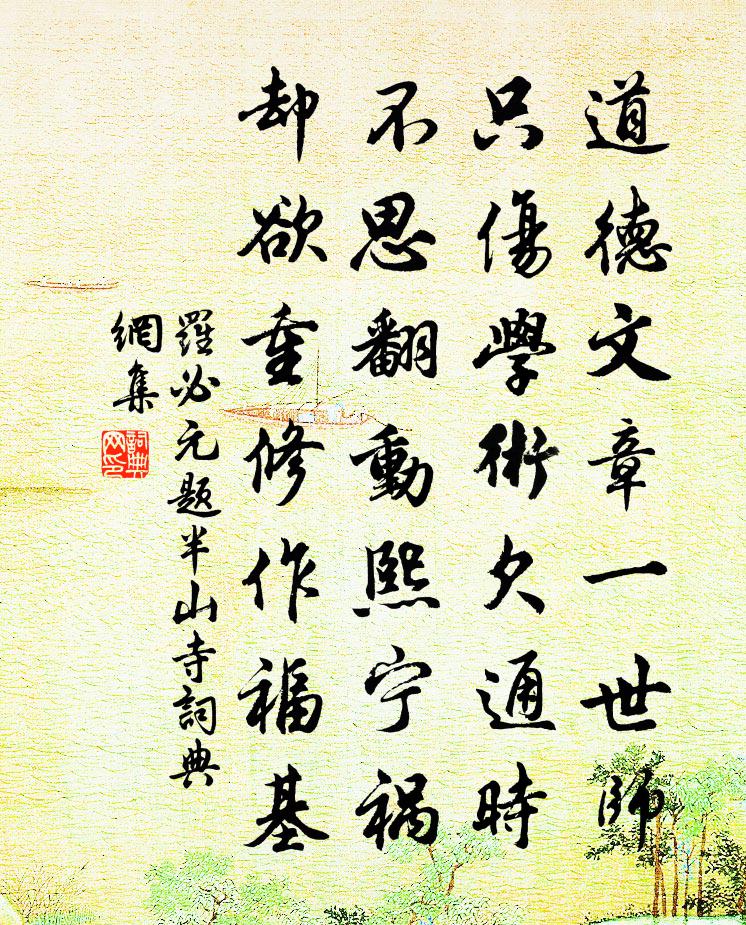 道德文章一世師
只傷學術欠通時
不思翻動熙宁祸
却欲重修作福基
羅必元题半山寺詞典
網集
詞典
网印